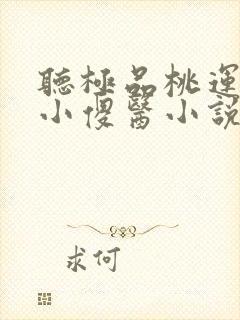 聽極品桃運
小傻醫小說
求何